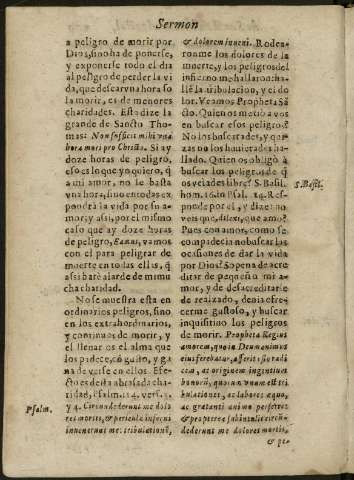 Sermon
a peligro de morir por
Dios, sino ha de ponerse,
y exponerse todo el dia
al peligro de perder la vi
da, que desear vna hora so
la morir, es de menores
charidades. Esto dize la
grande de Sancto Tho-
mas: Non sufficit mihi vna
hora mori pro Christo. Si ay
doze horas de peligro,
eso es lo que yo quiero, q̃
a mi amor, no le basta
vna hora, sino en todas ex
pondrà la vida por su a-
mor, y assi, por el mismo
caso que ay doze horas
de peligro, Eamus, vamos
con el para peligrar de
muerte en todas ellas, q̃
assi harè alarde de mi mu
cha charidad.
No se muestra esta en
ordinarios peligros, sino
en los extraordinarios,
y continuos de morir, y
el llenar os el alma que
los padece, cõ gusto, y ga
na de verse en ellos. Efe-
cto es desta abrasada cha-
ridad, Psalm. 114. vers. 3.
y 4. Circundederunt me dolo
res mortis, & pericula inferni
inuenerunt me: tribulationẽ,
Psalm.
& dolorem inueni. Rodea-
ron me los dolores de la
muerte, y los peligros del
infierno me hallaron: ha-
llè la tribulacion, y el do
lor. Veamos Propheta Sã
cto. Quien os metiò a vos
en buscar esos peligros?
No los buscarades, y qui-
zas no los huuierades ha-
llado. Quien os obligò à
buscar los peligros de q̃
os veades libre? S. Basil.
hom. 16. in Psal. 14. Res-
ponde por el, y dize: no
veis que, dilexi, que amò?
Pues con amor, como se
compadecia no buscar las
ocasiones de dar la vida
por Dios? So pena de acre
ditar de pequeño mi a-
mor, y de desacreditarle
de realzado, deuia ofre-
cerme gustoso, y buscar
inquisitiuo los peligros
de morir. Propheta Regius
amorem, quo in Deum animus
eius ferebatur, asserit &
bonorũ, quorum vnum est tri
bulationes, ac labores aquo,
ac gratanti animo perferre:
& propterea subiunxit: circũ-
dederunt me dolores mortis,
& pe-
S. Basil.